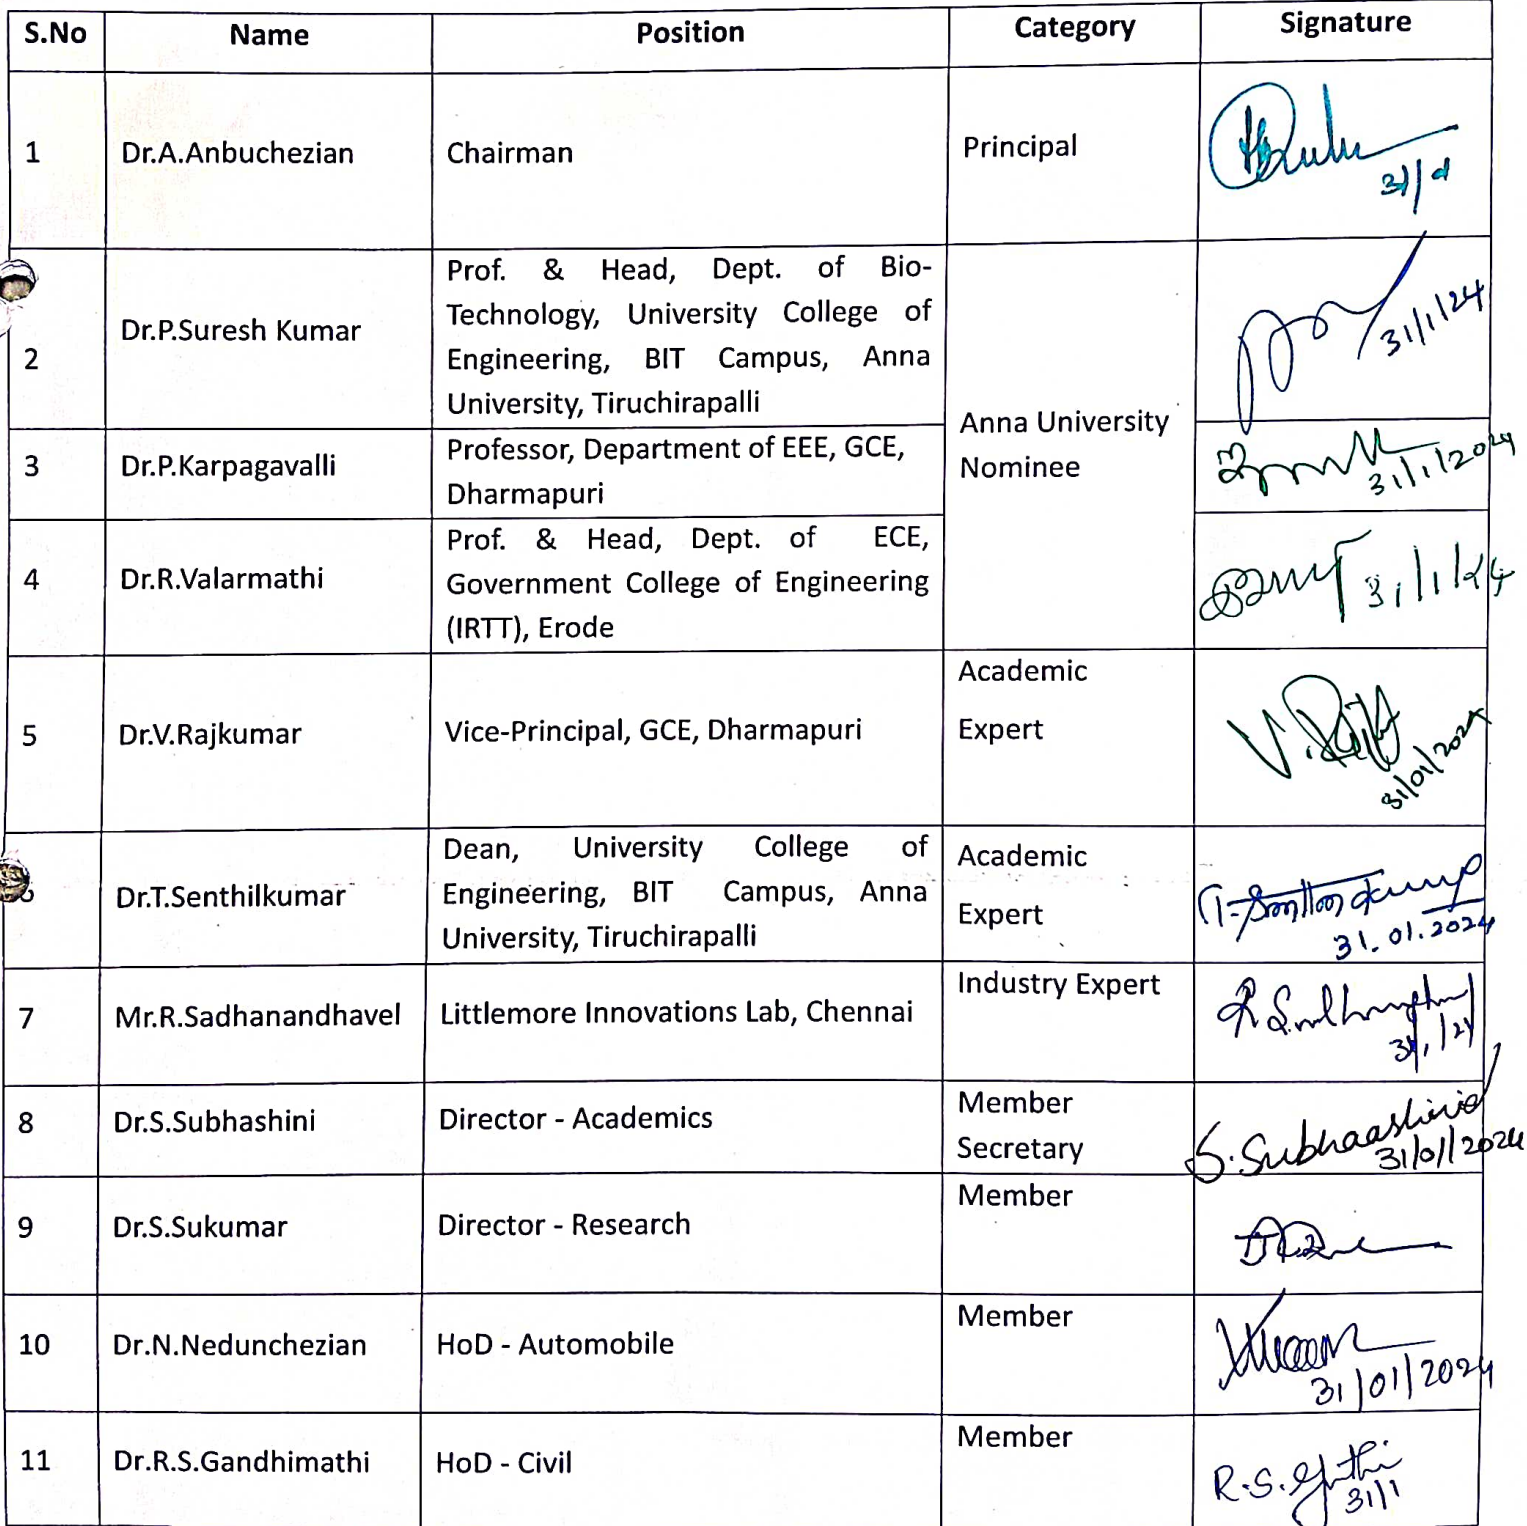 S.No Name Position Category Signature
1 Dr.A.Anbuchezian Chairman Principal
31/1
Prof. & Head, Dept. of Bio-
Technology, University College of
2 Dr.P.Suresh Kumar Engineering, BIT Campus, Anna
University, Tiruchirapalli
31/1/24
Anna University
Nominee
3 Dr.P.Karpagavalli Professor, Department of EEE, GCE,
Dharmapuri
31/1/2024
Prof. & Head, Dept. of ECE,
4 Dr.R.Valarmathi Government College of Engineering
(IRTT), Erode
31/1/24
5 Dr.V.Rajkumar Vice-Principal, GCE, Dharmapuri Academic
Expert
31/01/2024
Dean, University College of
Dr.T.Senthilkumar Engineering, BIT Campus, Anna
University, Tiruchirapalli
Academic
Expert
31.01.2024
7 Mr.R.Sadhanandhavel Littlemore Innovations Lab, Chennai Industry Expert
8 Dr.S.Subhashini Director - Academics Member
Secretary
S.Subhaashini
31/01/2024
9 Dr.S.Sukumar Director - Research Member
10 Dr.N.Nedunchezian HoD - Automobile Member
31/01/2024
11 Dr.R.S.Gandhimathi HoD - Civil Member
31/1